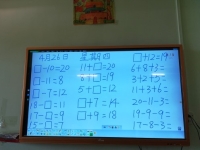 4月26日 星期四 □+12=19
□-10=20 11+□=20 6+8+3=
□-11=8 6+□=19 3+2+5=
□-7=12 5+□=12 11+3+6=
18-□=11 □+7=14 20-11-3=
17-□=9 □+9=18 19-9-9=
17-8-3=